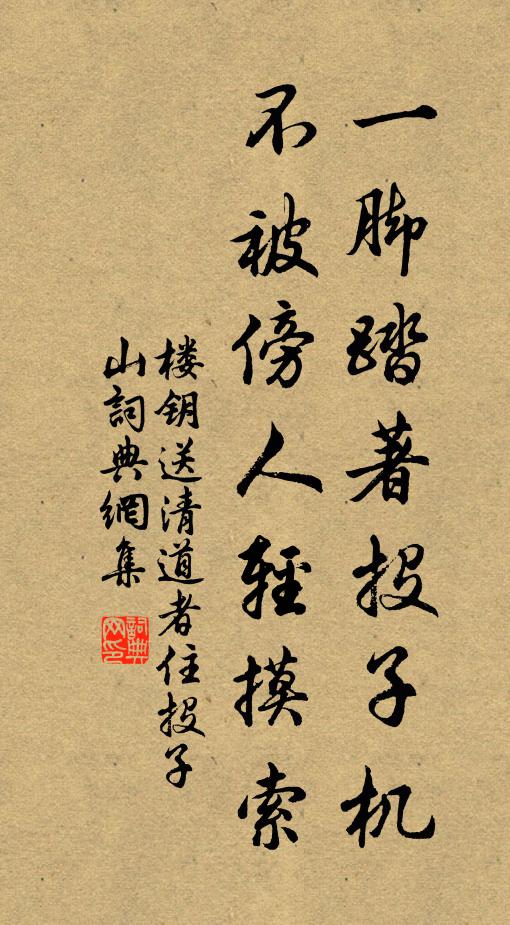 一脚踏著投子机
不被傍人輕摸索
楼钥送清道者住投子
山詞典網集
詞典网印